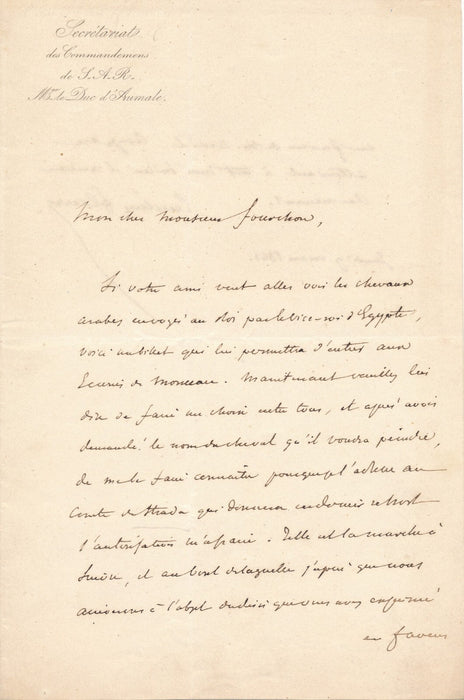 Secrétariat
des Commandemens
de S.A.R.
Mgr. le Duc d'Aumale.
Mon cher Monsieur Fourchon,
Si votre ami veut aller voir les chevaux
arabes envoyés au Roi par le vice-roi d'Egypte,
voici un billet qui lui permettra d'entrer aux
Ecuries de Monceau. Maintenant veuillez lui
dire de faire un choix entre tous, et après avoir
demandé le nom du cheval qu'il voudra peindre,
de me le faire connaître pour que je l'adresse au
Comte de Strada qui donnera en dernier ressort
l'autorisation nécessaire. Telle est la marche à
suivre, et au bout de laquelle j'espère que nous
arriverons à l'objet du désir que vous avez exprimé
en faveur